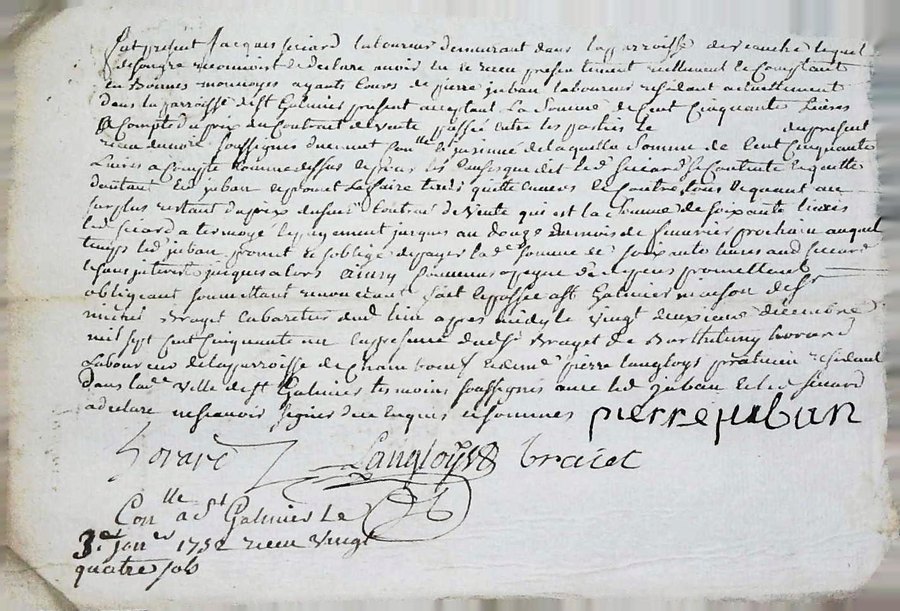 fut présent Jacques siciard laboureur demeurant dans la parroisse de veauche lequel
de son gré reconnoist et declare avoir eu et receu presentement reellement et Comptant
en Bonnes monnoyes ayants Cours de pierre juban laboureur residant actuellement
dans la parroisse de st Galmier present acceptant La Somme de Cent Cinquante Livres
a Compte du prix du Contrat de Vente passée entre les parties le du present
receu du no.re soussigné duement Con.lle et jusinué de laquelle Somme de Cent Cinquante
Livres a Compte Comme dessus et pour les Causes que dit led. siciard se Contente en quitte
d'autant led. juban et promet Le faire tenir quitte envers et Contre tous et quant au
surplus restant du prix du sus.t Contrat de Vente qui est la Somme de soixante livres
led siciard a termoyé le payement jusques au douze du mois de janvier prochain auquel
temps led. juban promet et s'oblige de payer lad.e somme de soixante livres aud siciard
et sans interest jusques alors ainsy peine de depens promettent
obligeant soumettant renonceant fait et passé a st Galmier maison de s.r
michel Brayet Cabaretier dud. lieu apres midy le vingt deuxieme decembre
mil sept Cent Cinquante un En presence dud. s.r Brayet de Barthelemy hovard
Laboureur de la parroisse de Chambœuf et de me pierre langloys praticien residant
dans lad. Ville de st Galmier temoins soussignés avec led. juban et led siciard
a declaré ne scavoir signer de ce Enquis et sommés pierre juban
hovard Langloys braiet
Con.lle a St Galmier Le
3.e janv.er 1752 receu vingt
quatre sols